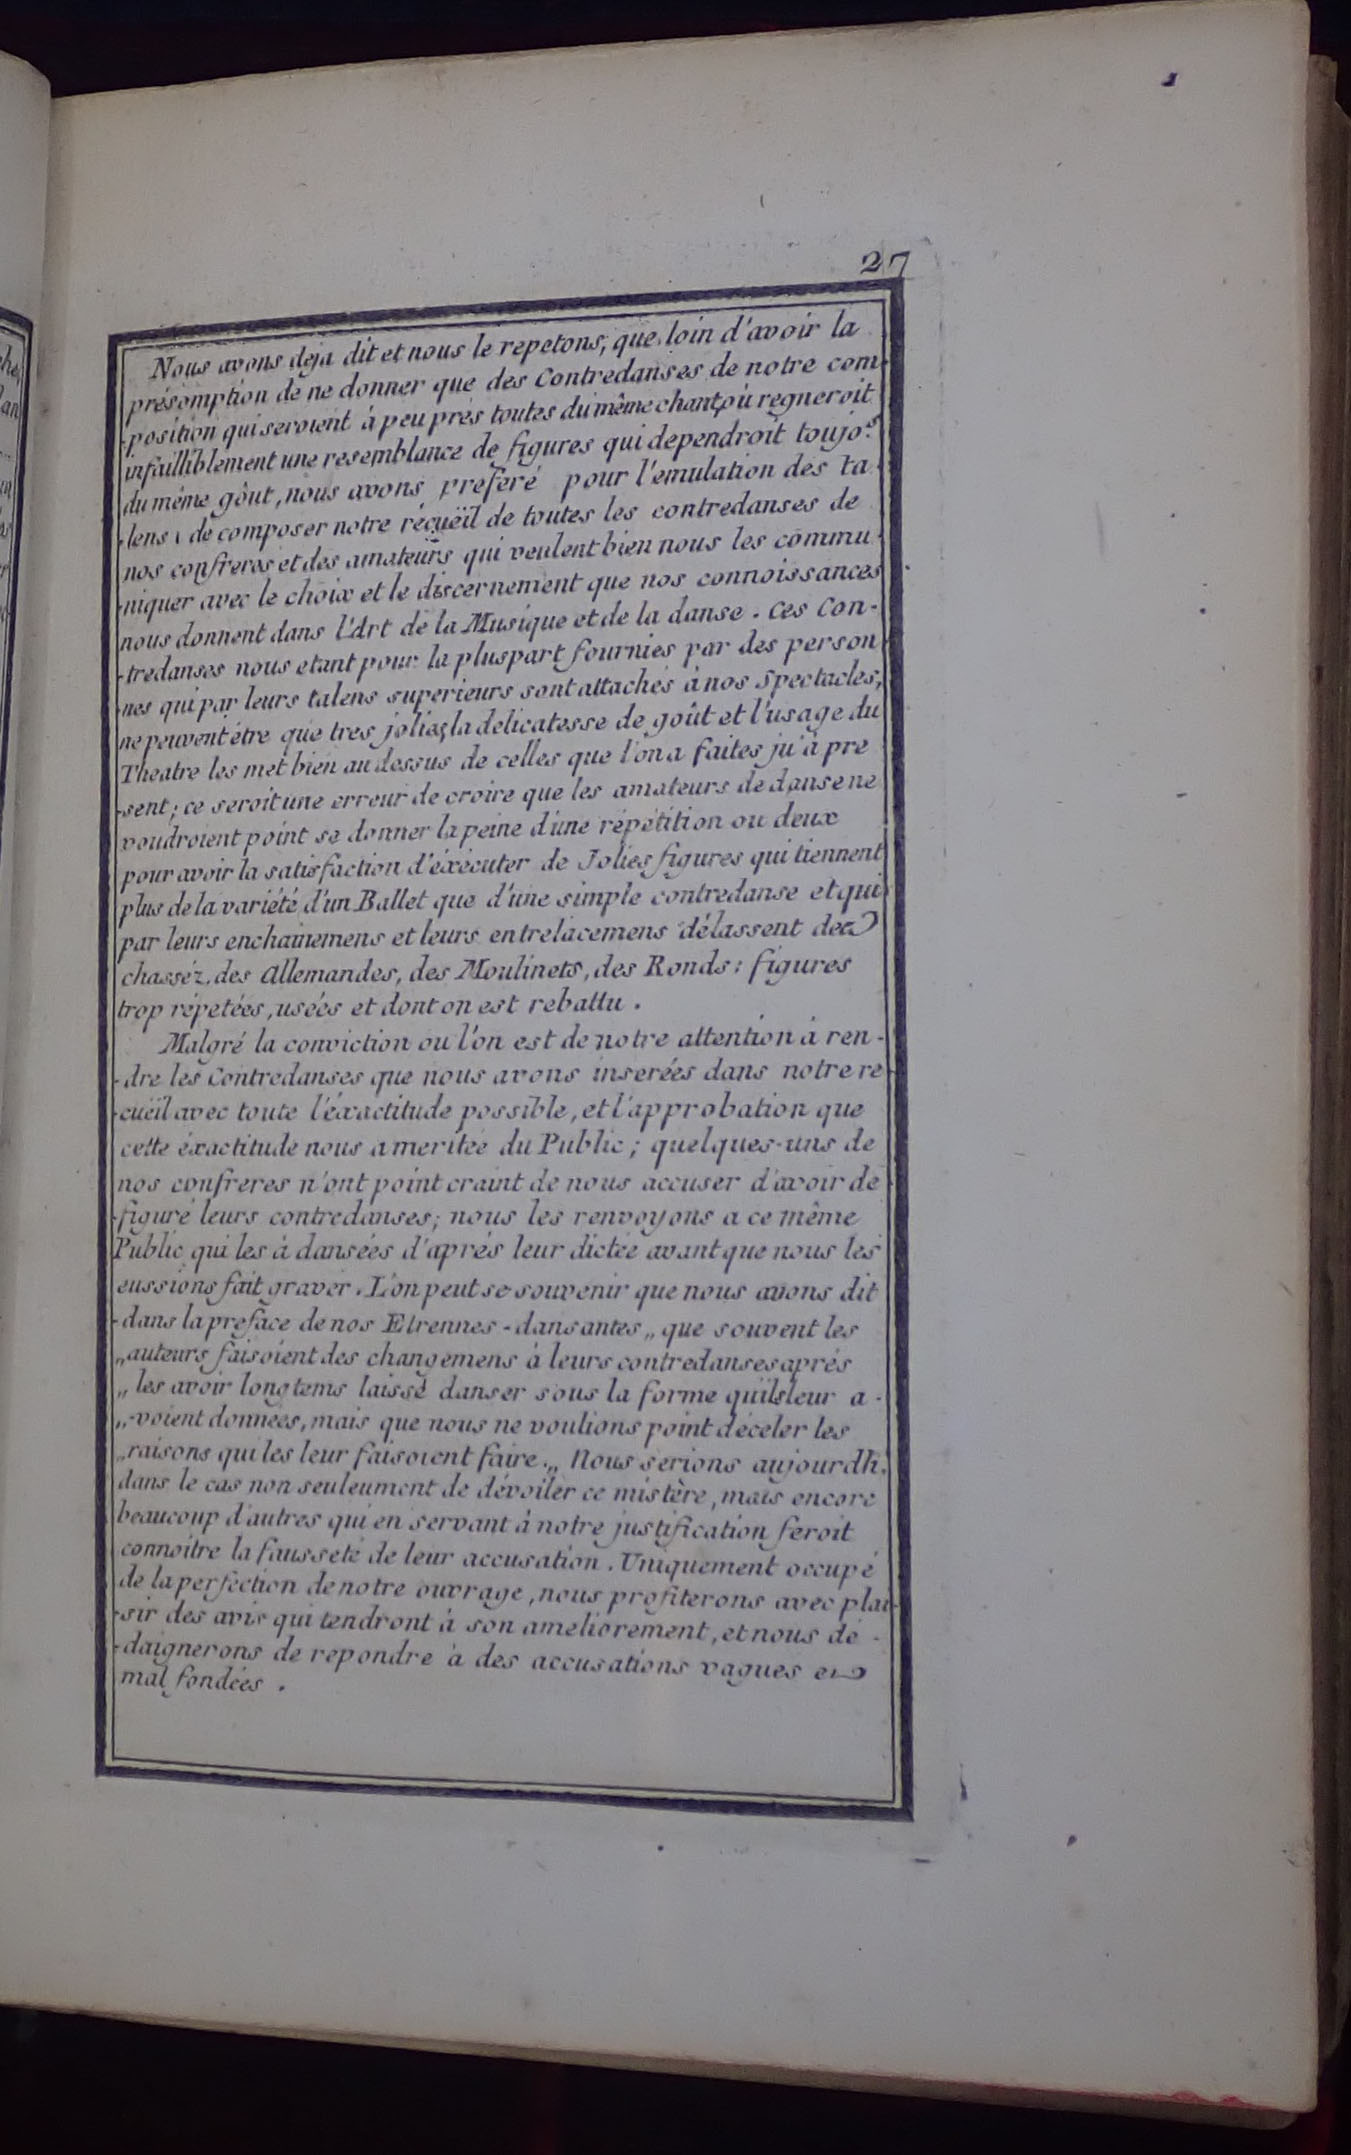 27
Nous avons deja dit et nous le repetons, que loin d'avoir la
présomption de ne donner que des Contredanses de notre com
-position qui seroient à peu prés toutes du même chant, où regneroit
infailliblement une resemblance de figures qui dependroit toujo.rs
du même gôut, nous avons preferé pour l'emulation des ta
-lens, de composer notre récüeïl de toutes les contredanses de
nos confreres et des amateurs qui veulent bien nous les commu
-niquer avec le choix et le discernement que nos connoissances
nous donnent dans l'Art de la Musique et de la danse. Ces Con-
-tredanses nous etant pour la pluspart fournies par des person
-nes qui par leurs talens superieurs sont attachés à nos Spectacles,
ne peuvent étre que tres jolies, la delicatesse de goût et l'usage du
Theatre les met bien au dessus de celles que l'on a faites ju'à pre
-sent; ce seroit une erreur de croire que les amateurs de danse ne
voudroient point se donner la peine d'une répétition ou deux
pour avoir la satisfaction d'éxécuter de Jolies figures qui tiennent
plus de la variété d'un Ballet que d'une simple contredanse et qui
par leurs enchainemens et leurs entrelacemens délassent des
chasséz, des Allemandes, des Moulinets, des Ronds: figures
trop répetées, usées et dont on est rebattu.
Malgré la conviction ou l'on est de notre attention à ren-
-dre les Contredanses que nous avons inserées dans notre re
-cüeïl avec toute l'éxactitude possible, et l'approbation que
cette éxactitude nous a meritée du Public; quelques-uns de
nos confreres n'ont point craint de nous accuser d'avoir dé
-figuré leurs contredanses; nous les renvoyons a ce même
Public qui les à dansées d'aprés leur dictée avant que nous les
eussions fait graver. L'on peut se souvenir que nous avons dit
-dans la preface de nos Etrennes-dansantes „ que souvent les
„ auteurs faisoient des changemens à leurs contredanses aprés
„ les avoir longtems laissé danser sous la forme qu'ils leur a-
„ -voient données, mais que nous ne voulions point déceler les
„ raisons qui les leur faisoient faire. „ Nous serions aujourdh.
dans le cas non seuleument de dévoiler ce mistère, mais encore
beaucoup d'autres qui en servant à notre justification feroit
connoitre la fausseté de leur accusation. Uniquement occupé
de la perfection de notre ouvrage, nous profiterons avec plai-
-sir des avis qui tendront à son ameliorement, et nous dé-
-daignerons de repondre à des accusations vagues et
mal fondées.